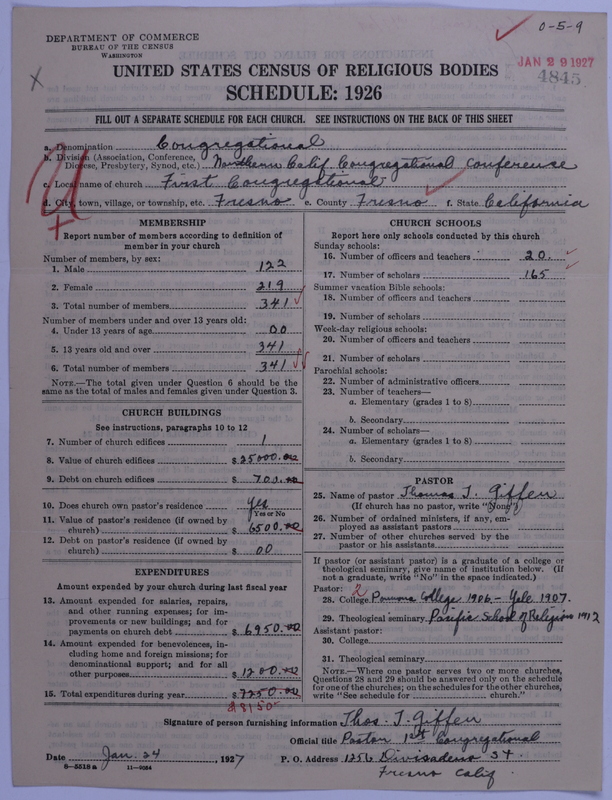 0-5-9
DEPARTMENT OF COMMERCE
BUREAU OF THE CENSUS
WASHINGTON
JAN 29 1927
4845
UNITED STATES CENSUS OF RELIGIOUS BODIES
SCHEDULE: 1926
FILL OUT A SEPARATE SCHEDULE FOR EACH CHURCH. SEE INSTRUCTIONS ON THE BACK OF THIS SHEET
a. Denomination Congregational
b. Division (Association, Conference, Diocese, Presbytery, Synod, etc.) Northern Calif. Congregational Conference
c. Local name of church First Congregational
d. City, town, village, or township, etc. Fresno e. County Fresno f. State California
MEMBERSHIP
Report number of members according to definition of
member in your church
Number of members, by sex:
1. Male 122
2. Female 219
3. Total number of members 341
Number of members under and over 13 years old:
4. Under 13 years of age 00
5. 13 years old and over 341
6. Total number of members 341
NOTE.—The total given under Question 6 should be
same as the total of males and females given under Question 3.
CHURCH BUILDINGS
See instructions, paragraphs 10 to 12
7. Number of church edifices 1
8. Value of church edifices $25000.00
9. Debt on church edifices $700.00
10. Does church own pastor's residence yes
Yes or No
11. Value of pastor's residence (if owned by
church) $6500.00
12. Debt on pastor's residence (if owned by
church) $00
EXPENDITURES
Amount expended by your church during last fiscal year
13. Amount expended for salaries, repairs,
and other running expenses; for im-
provements or new buildings; and for
payments on church debt $6950.00
14. Amount expended for benevolences, in-
cluding home and foreign missions; for
denominational support; and for all
other purposes $1200.00
15. Total expenditures during year $7250.00
$8150
CHURCH SCHOOLS
Report here only schools conducted by this church
Sunday schools:
16. Number of officers and teachers 20
17. Number of scholars 165
Summer vacation Bible schools:
18. Number of officers and teachers
19. Number of scholars
Week-day religious schools:
20. Number of officers and teachers
21. Number of scholars
Parochial schools:
22. Number of administrative officers
23. Number of teachers—
a. Elementary (grades 1 to 8)
b. Secondary
24. Number of scholars—
a. Elementary (grades 1 to 8)
b. Secondary
PASTOR
25. Name of pastor Thomas J. Giffen
(If church has no pastor, write "None")
26. Number of ordained ministers, if any, em-
ployed as assistant pastors
27. Number of other churches served by the
pastor or his assistants
If pastor (or assistant pastor) is a graduate of a college or
theological seminary, give name of institution below. (If
not a graduate, write "No" in the space indicated.)
Pastor: 2
28. College Pomona College 1906 - Yale 1907.
29. Theological seminary Pacific School of Religion 1912
Assistant pastor:
30. College
31. Theological seminary
NOTE.—Where one pastor serves two or more churches,
Questions 28 and 29 should be answered only on the schedule
for one of the churches; on the schedules for the other churches,
write "See schedule for church."
Signature of person furnishing information Thos. J. Giffen
Official title Pastor 1st Congregational
Date Jan. 24 1927 P. O. Address 1256 Divisadero St.
8-5518a 11-9264 Fresno Calif